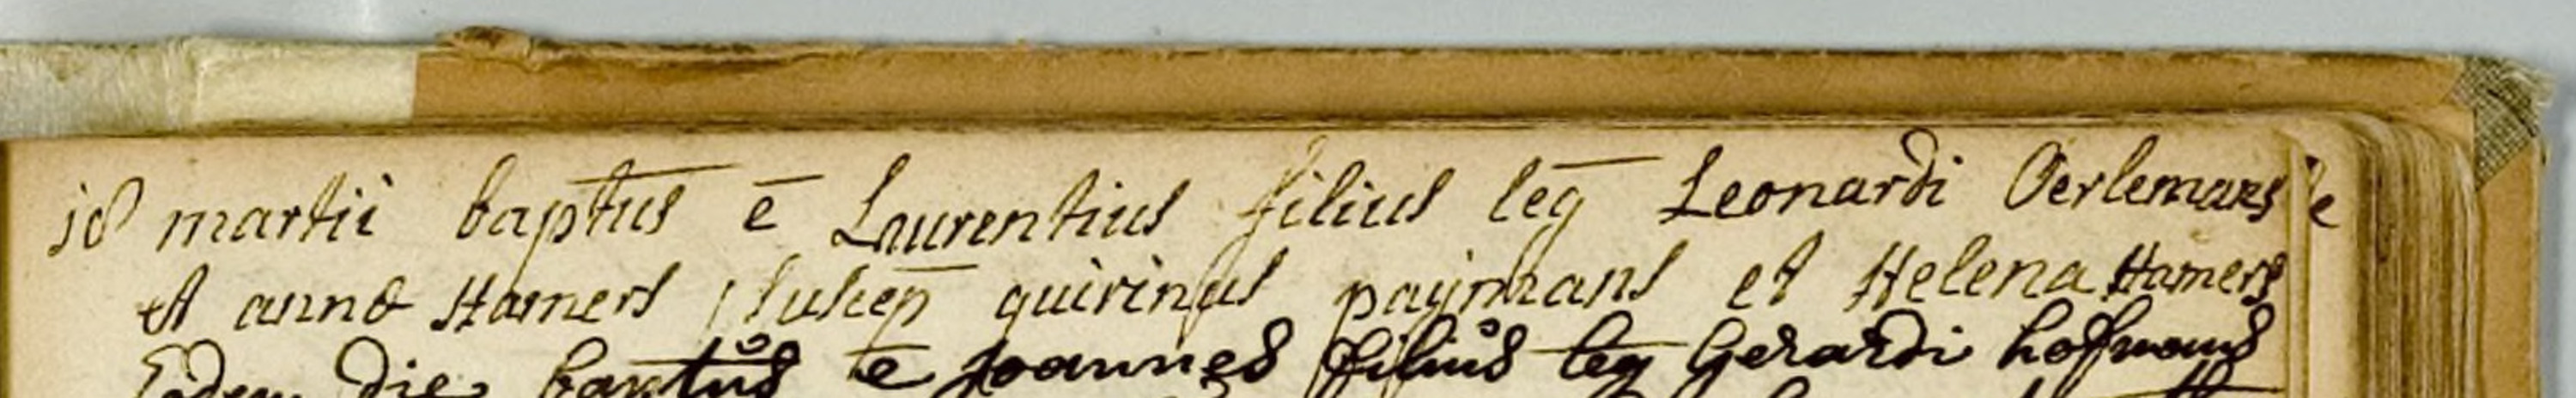 18 martii baptus ē Laurentius filius leg Leonardi Oerlemans
et anna Hamers suscep quirinus paijmans et Helena Hamers
Eodem die baptus ē Joannes filius leg Gerardi hofmans